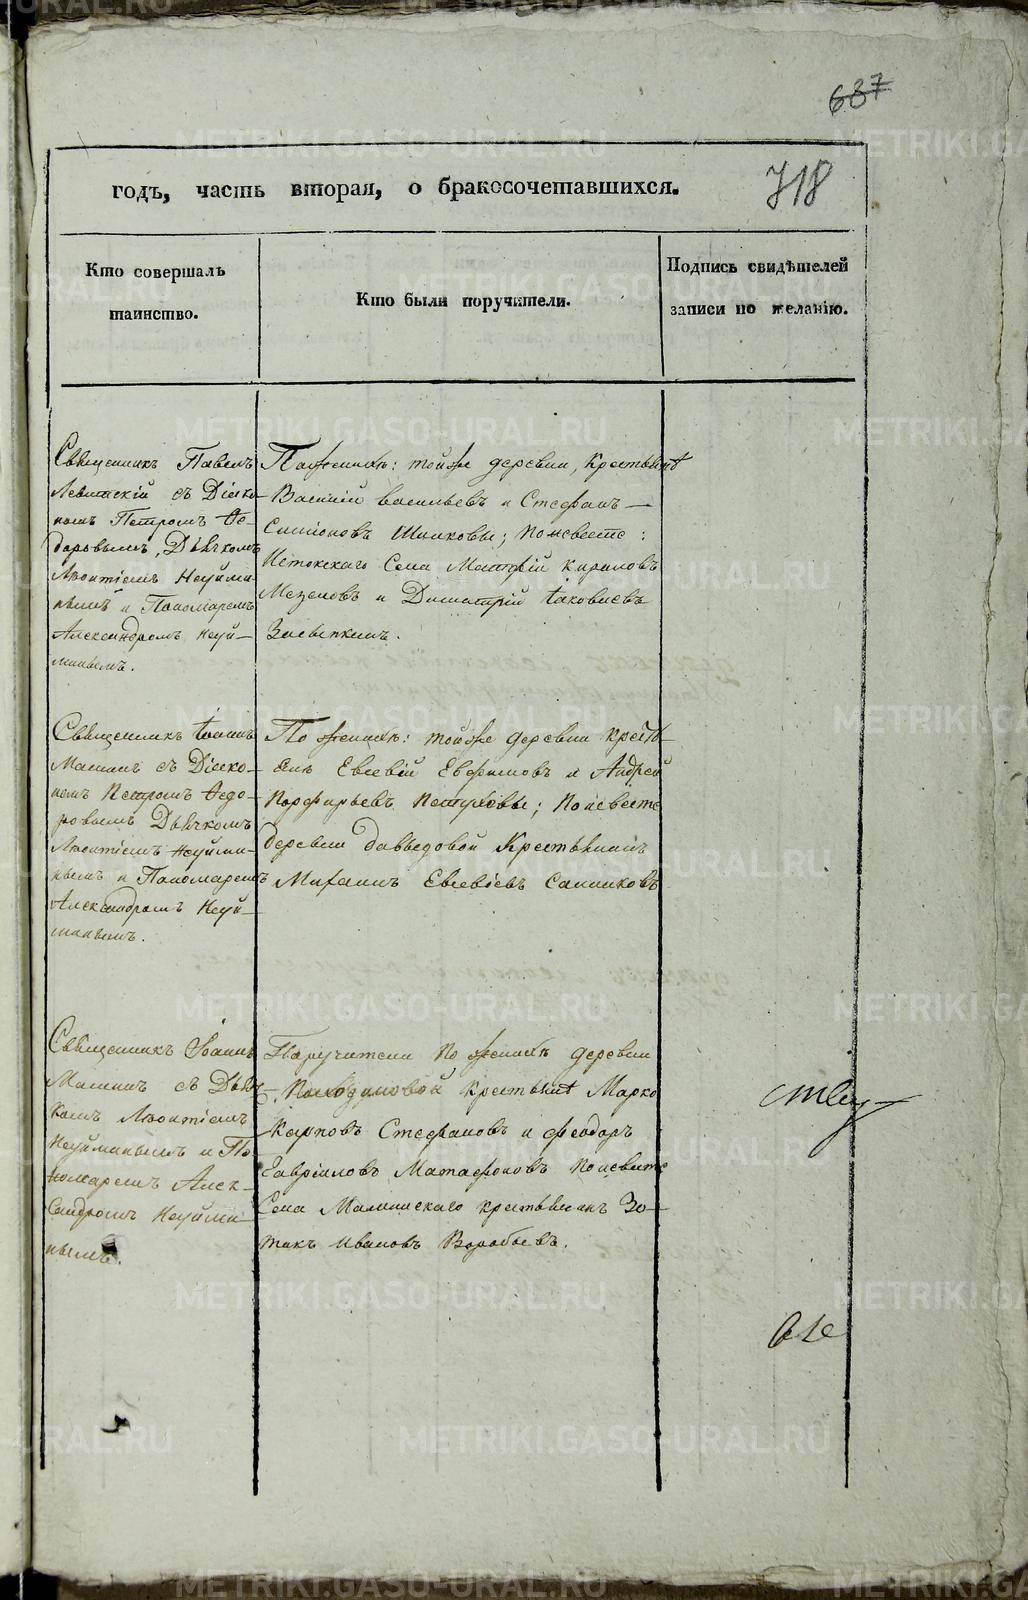 637
718
годъ, часть вторая, о бракосочетавшихся.
Кто совершалъ
таинство.
Кто были поручители.
Подпись свидѣтелей
записи по желанію.
Священникъ Павелъ
Левитскій съ Діако-
номъ Петромъ Ѳе-
доровымъ, Дьячкомъ
Леонтіемъ Неуйми-
нымъ и Пономаремъ
Александромъ Неуй-
минымъ.
По женихѣ: тойже деревни, крестьянѣ
Василій Васильевъ и Стефанъ
Симіоновъ Шиховы; по невестѣ:
Истокскаго Села Матфій Кириловъ
и Димитрій Іаковлевъ
Засыпкинъ.
Священникъ Іоаннъ
Малинъ съ Діако-
номъ Петромъ Ѳедо-
ровымъ Дьячкомъ
Леонтіемъ Неуйми-
нымъ и Пономаремъ
Александромъ Неуй-
минымъ.
По женихѣ: тойже деревни крестья-
не Евсевій Евфимовъ и Андрей
Порфирьевъ Петуховы; по невестѣ
деревни Давыдовой Крестьянинъ
Михаилъ Евсевіевъ Санниковъ
Священникъ Іоаннъ
Малинъ съ Дьяч-
комъ Леонтіемъ
Неуйминымъ и По-
номаремъ Алек-
сандромъ Неуйми-
нымъ.
Поручители по женихѣ деревни
крестьянѣ Марко
Карповъ Стефановъ и Феодоръ
Гавріиловъ Матафоновъ по невѣстѣ
Села Малинскаго крестьянинъ Зо-
тикъ Ивановъ Воробьевъ.